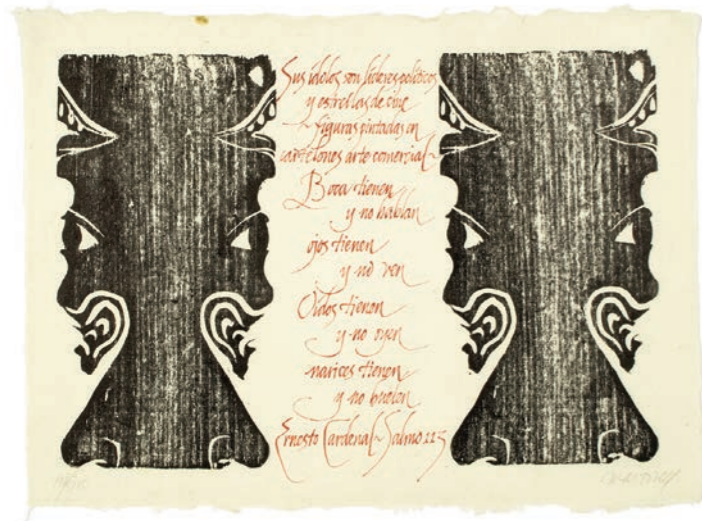 Sus ídolos son líderes políticos
y estrellas de cine
~ figuras pintadas en
cartelones arte comercial ~
Boca tienen
y no hablan
ojos tienen
y no ven
Oídos tienen
y no oyen
narices tienen
y no huelen
Ernesto Cardenal ~ Salmo 115